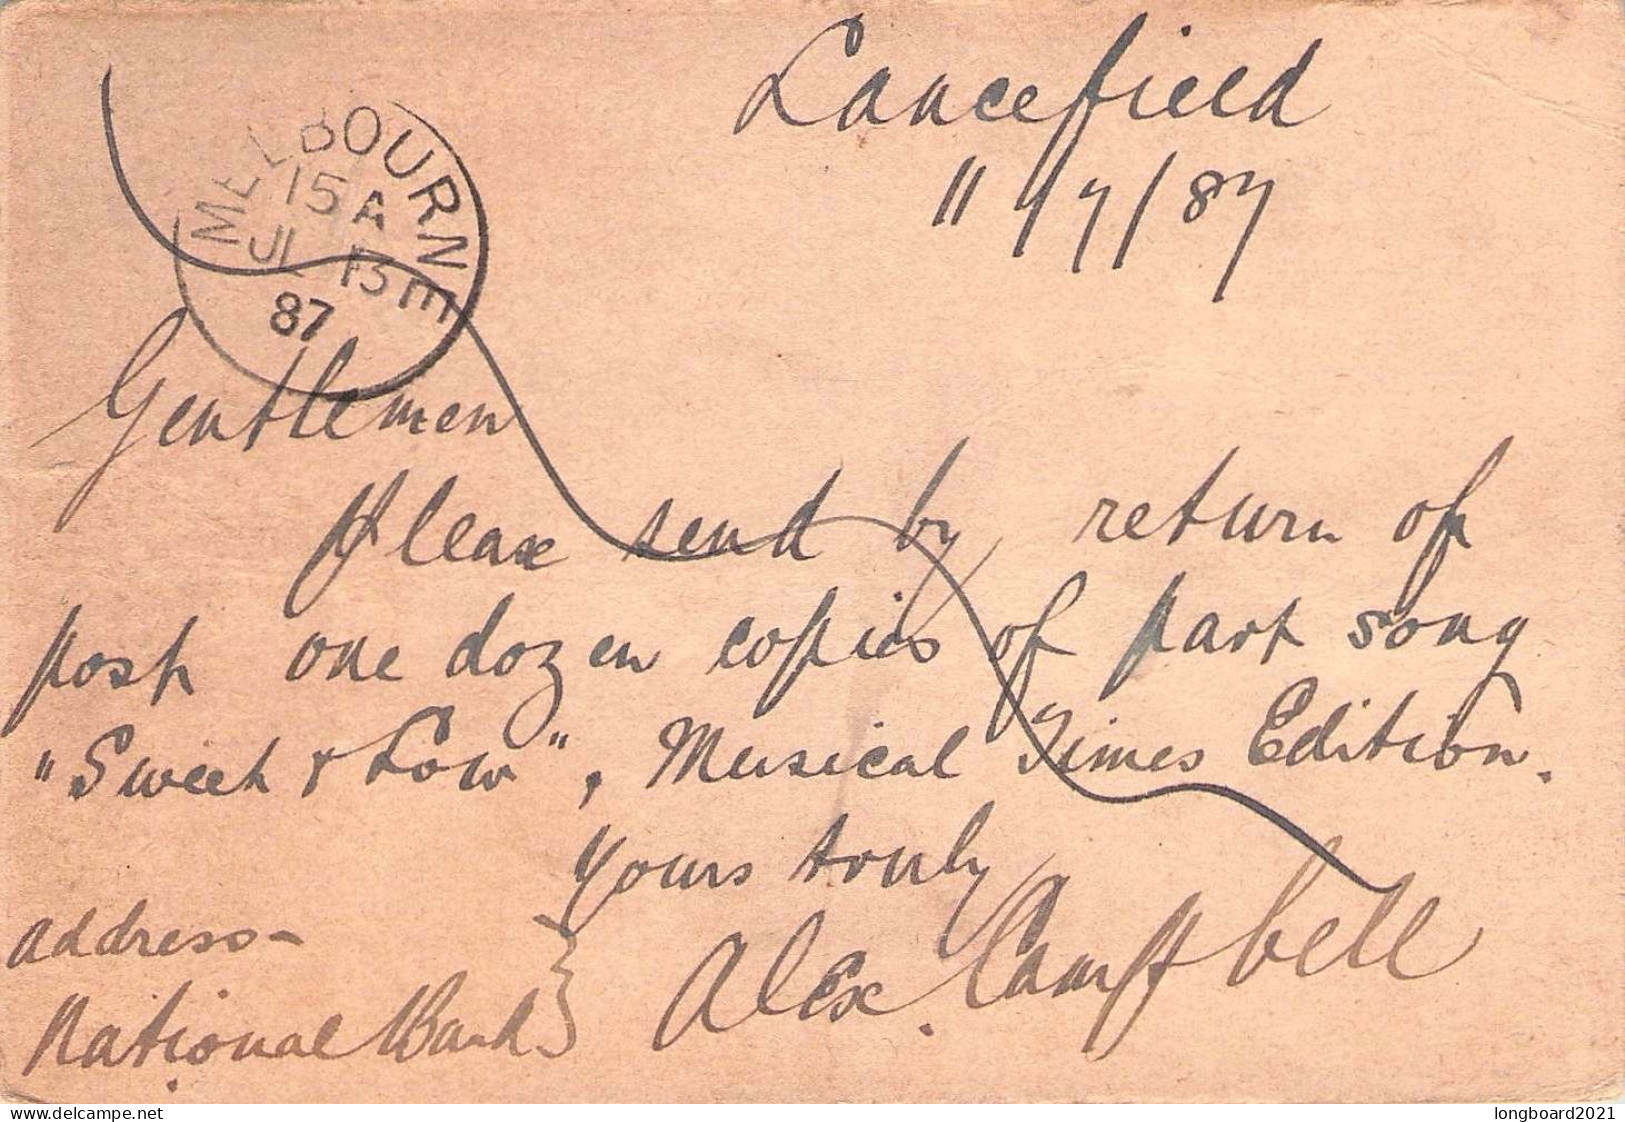 Lancefield
11/7/87
MELBOURNE
15A
JL 13
87
Gentlemen
Please send by return of
post one dozen copies of part song
"Sweet & Low", Musical Times Edition.
Yours truly
Alex. Campbell
address—
National Bank
longboard2021